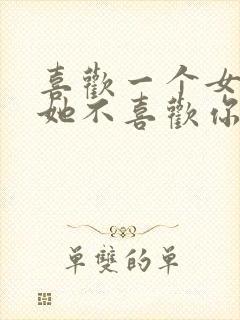 喜歡一个女
她不喜歡你
單雙的單